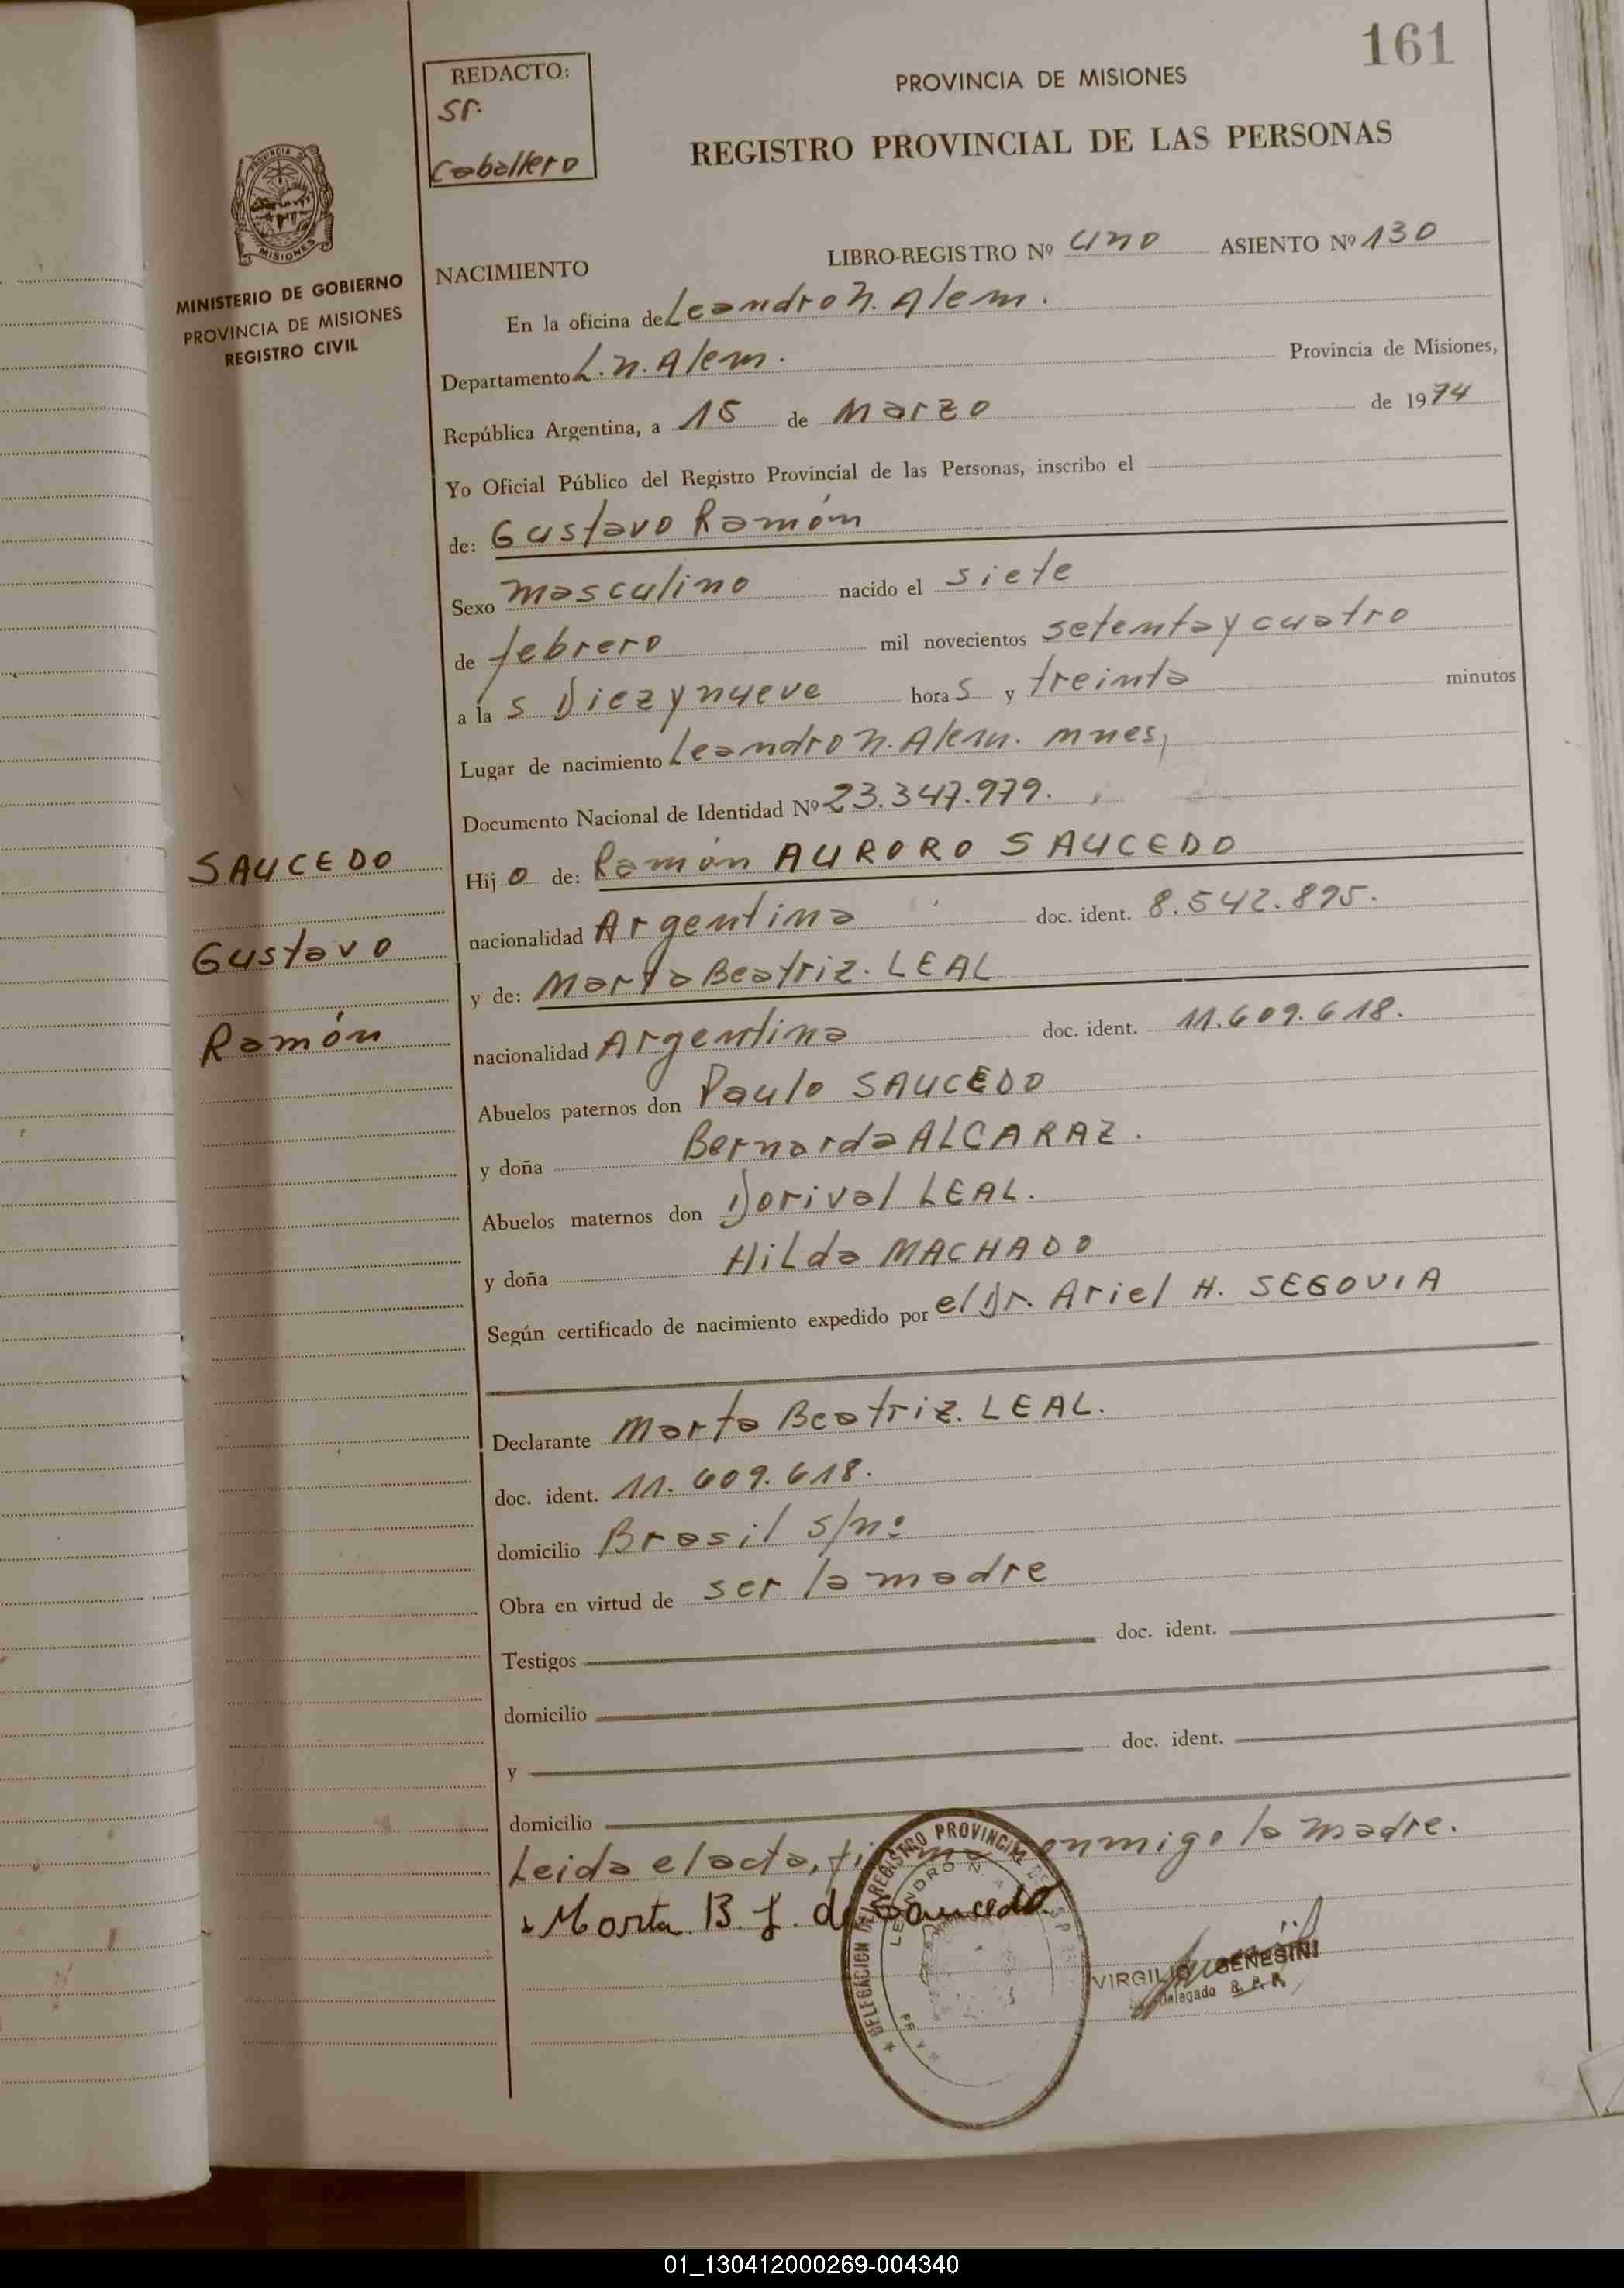 161
REDACTO:
Sr.
Caballero
PROVINCIA DE MISIONES
REGISTRO PROVINCIAL DE LAS PERSONAS
PROVINCIA DE
MISIONES
MINISTERIO DE GOBIERNO
PROVINCIA DE MISIONES
REGISTRO CIVIL
NACIMIENTO LIBRO-REGISTRO Nº uno ASIENTO Nº 130
En la oficina de Leandro N. Alem.
Departamento L. N. Alem. Provincia de Misiones,
República Argentina, a 15 de Marzo de 1974
Yo Oficial Público del Registro Provincial de las Personas, inscribo el
de: Gustavo Ramón
Sexo masculino nacido el siete
de febrero mil novecientos setenta y cuatro
a la s Diez y nueve hora s y treinta minutos
Lugar de nacimiento Leandro N. Alem. mnes,
Documento Nacional de Identidad Nº 23.347.979.
SAUCEDO
Gustavo
Ramón
Hij o de: Ramón AURORO SAUCEDO
nacionalidad Argentina doc. ident. 8.542.895.
y de: Marta Beatriz. LEAL
nacionalidad Argentina doc. ident. 11.609.618.
Abuelos paternos don Paulo SAUCEDO
y doña Bernarda ALCARAZ.
Abuelos maternos don Dorival LEAL.
y doña Hilda MACHADO
Según certificado de nacimiento expedido por el Dr. Ariel H. SEGOVIA
Declarante Marta Beatriz. LEAL.
doc. ident. 11.609.618.
domicilio Brasil s/nº
Obra en virtud de ser la madre
Testigos doc. ident.
domicilio
y doc. ident.
domicilio
Leida el acta, firma conmigo la madre.
Marta B. L. de Saucedo.
DELEGACION DEL REGISTRO PROVINCIAL DE
LEANDRO N. A
VIRGILIO GENESINI
Delegado R. P. P.
01_130412000269-004340